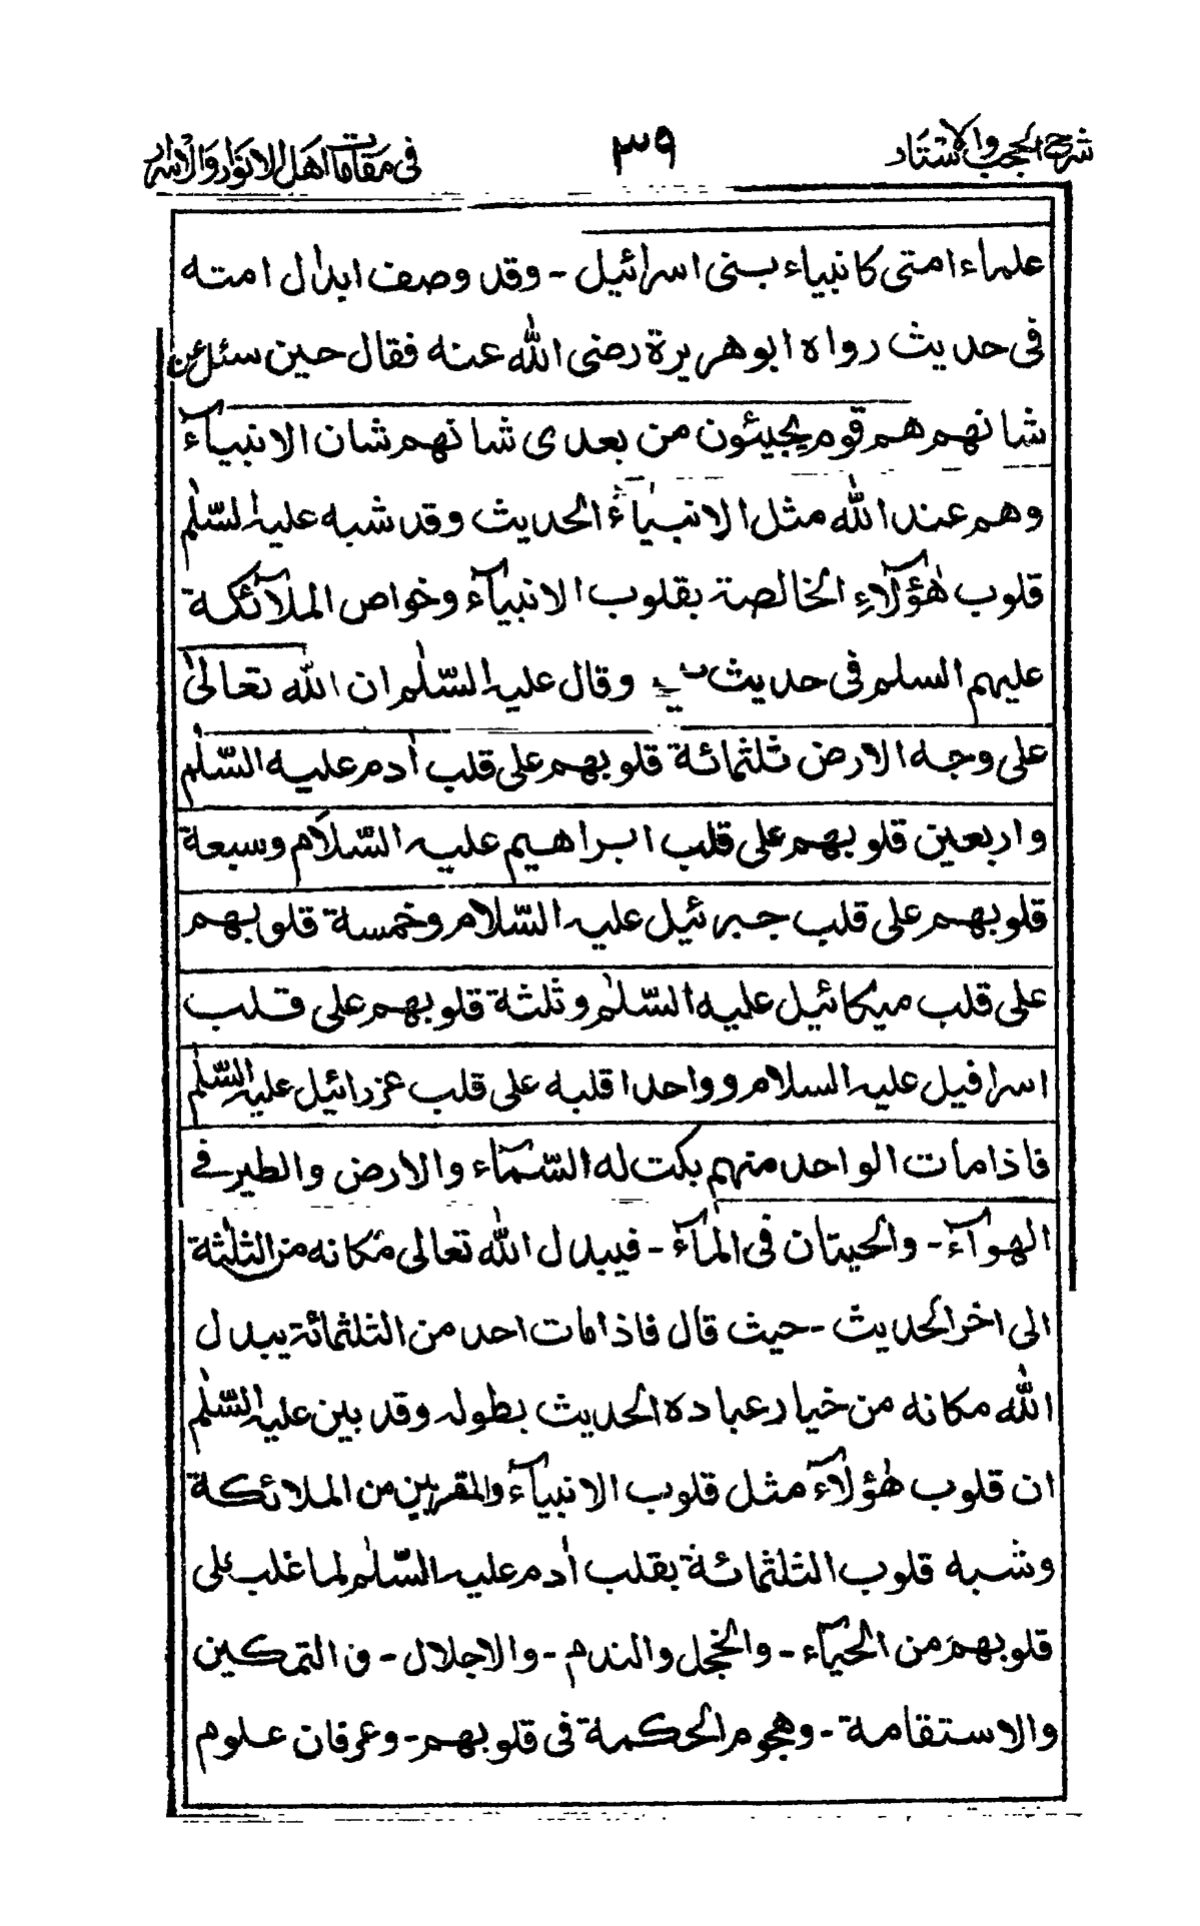 شرح الحجب والاستار ٣٩ فی مقامات اهل الانوار والاسرار
علماء امتی کانبیاء بنی اسرائیل - وقد وصف ابدال امته
فی حدیث رواه ابوهریرة رضی الله عنه فقال حین سئل عن
شانهم هم قوم یجیئون من بعدی شانهم شان الانبیآء
وهم عند الله مثل الانبیآء الحدیث وقد شبه علیه السّلٰم
قلوب هٰؤلآءِ الخالصة بقلوب الانبیآء وخواص الملآئکة
علیهم السلم فی حدیث وقال علیه السّلٰم ان الله تعالیٰ
علی وجه الارض ثلثمائة قلوبهم علی قلب اٰدم علیه السّلٰم
واربعین قلوبهم علی قلب ابراهیم علیه السّلام وسبعة
قلوبهم علی قلب جبرئیل علیه السّلام وخمسة قلوبهم
علی قلب میکائیل علیه السّلٰم وثلثة قلوبهم علی قلب
اسرافیل علیه السلام وواحدا قلبه علی قلب عزرائیل علیه السّلٰم
فاذامات الواحد منهم بکت له السّمآء والارض والطیر فے
الهوآء - والحیتان فی المآء - فیبدل الله تعالی مکانه من الثلٰثة
الی اخر الحدیث - حیث قال فاذامات احد من الثلثمائة یبدل
الله مکانه من خیار عباده الحدیث بطوله وقد بین علیه السّلٰم
ان قلوب هٰؤلآء مثل قلوب الانبیآء والمقربین من الملائکة
وشبه قلوب الثلثمائة بقلب اٰدم علیه السّلٰم لما غلب علی
قلوبهم من الحیآء - والخجل والندم - والاجلال - فی التمکین
والاستقامة - وهجوم الحکمة فی قلوبهم - وعرفان علوم